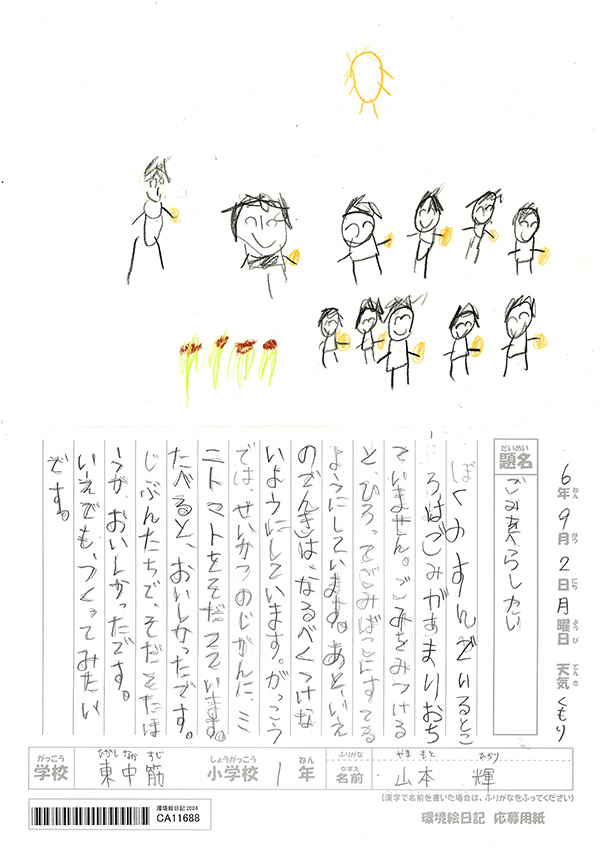 6年9月2日月曜日 天気 くもり
ねん がつ にち ようび てんき
だいめい
題名
ごみをへらしたい
ぼくのすんでいるとこ
ろはごみがあまりおち
ていません。ごみをみつける
と、ひろってごみばこにすてる
ようにしています。あと、いえ
のでんきは、なるべくつけな
いようにしています。がっこう
では、せいかつのじかんに、ミ
ニトマトをそだてています。
たべると、おいしかったです。
じぶんたちで、そだてたほ
うが、おいしかったです。
いえでも、つくってみたい
です。
がっこう
学校
ひがし なか すじ
東中筋
しょうがっこう
小学校
1
ねん
年
ふりがな
なまえ
名前
やま もと ひかり
山本 輝
(漢字で名前を書いた場合は、ふりがなをふってください)
環境絵日記 2024
CA11688
環境絵日記 応募用紙